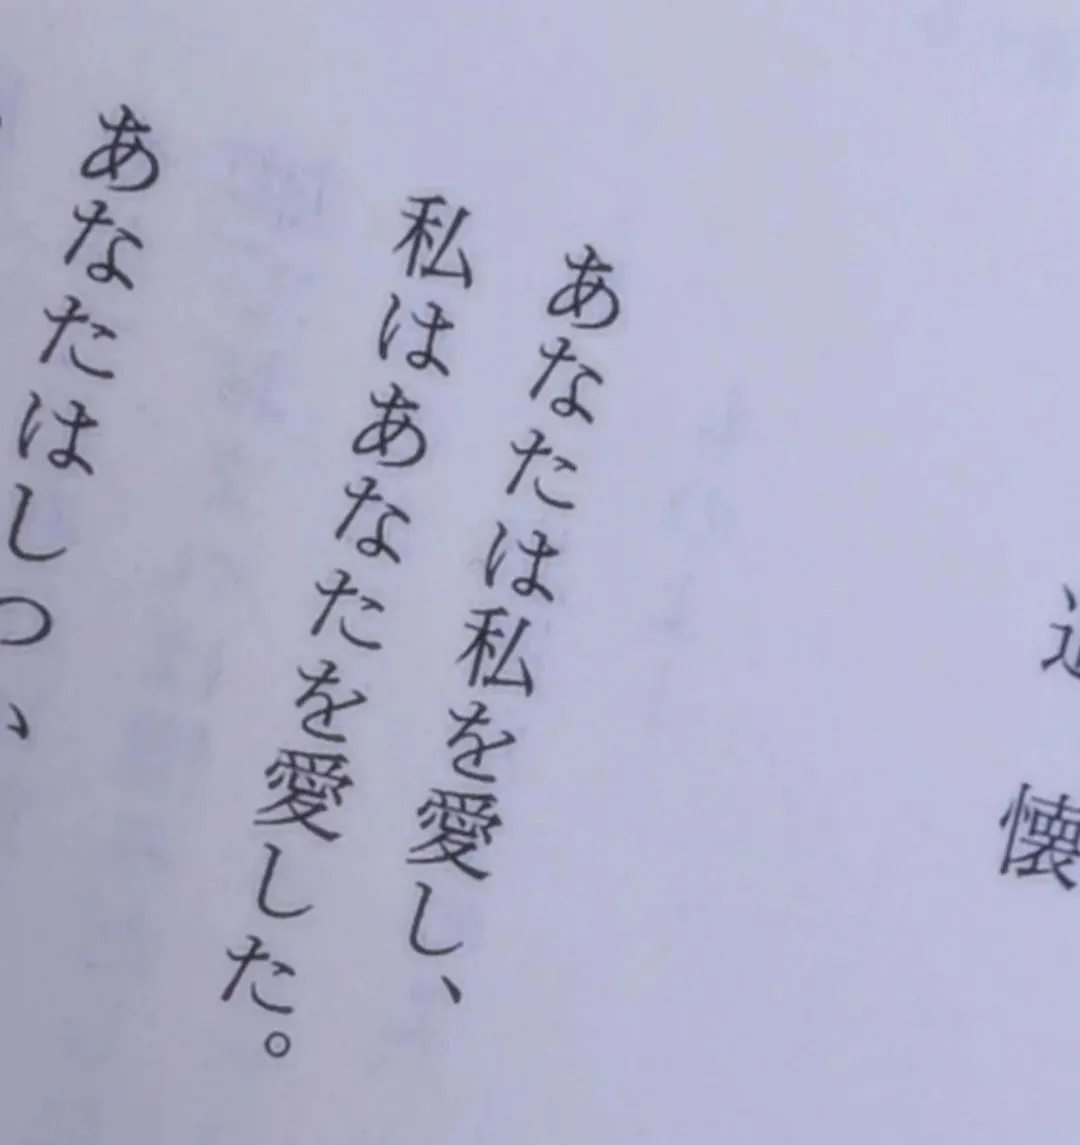 懐
あなたは私を愛し、
私はあなたを愛した。
あなたはしつ、